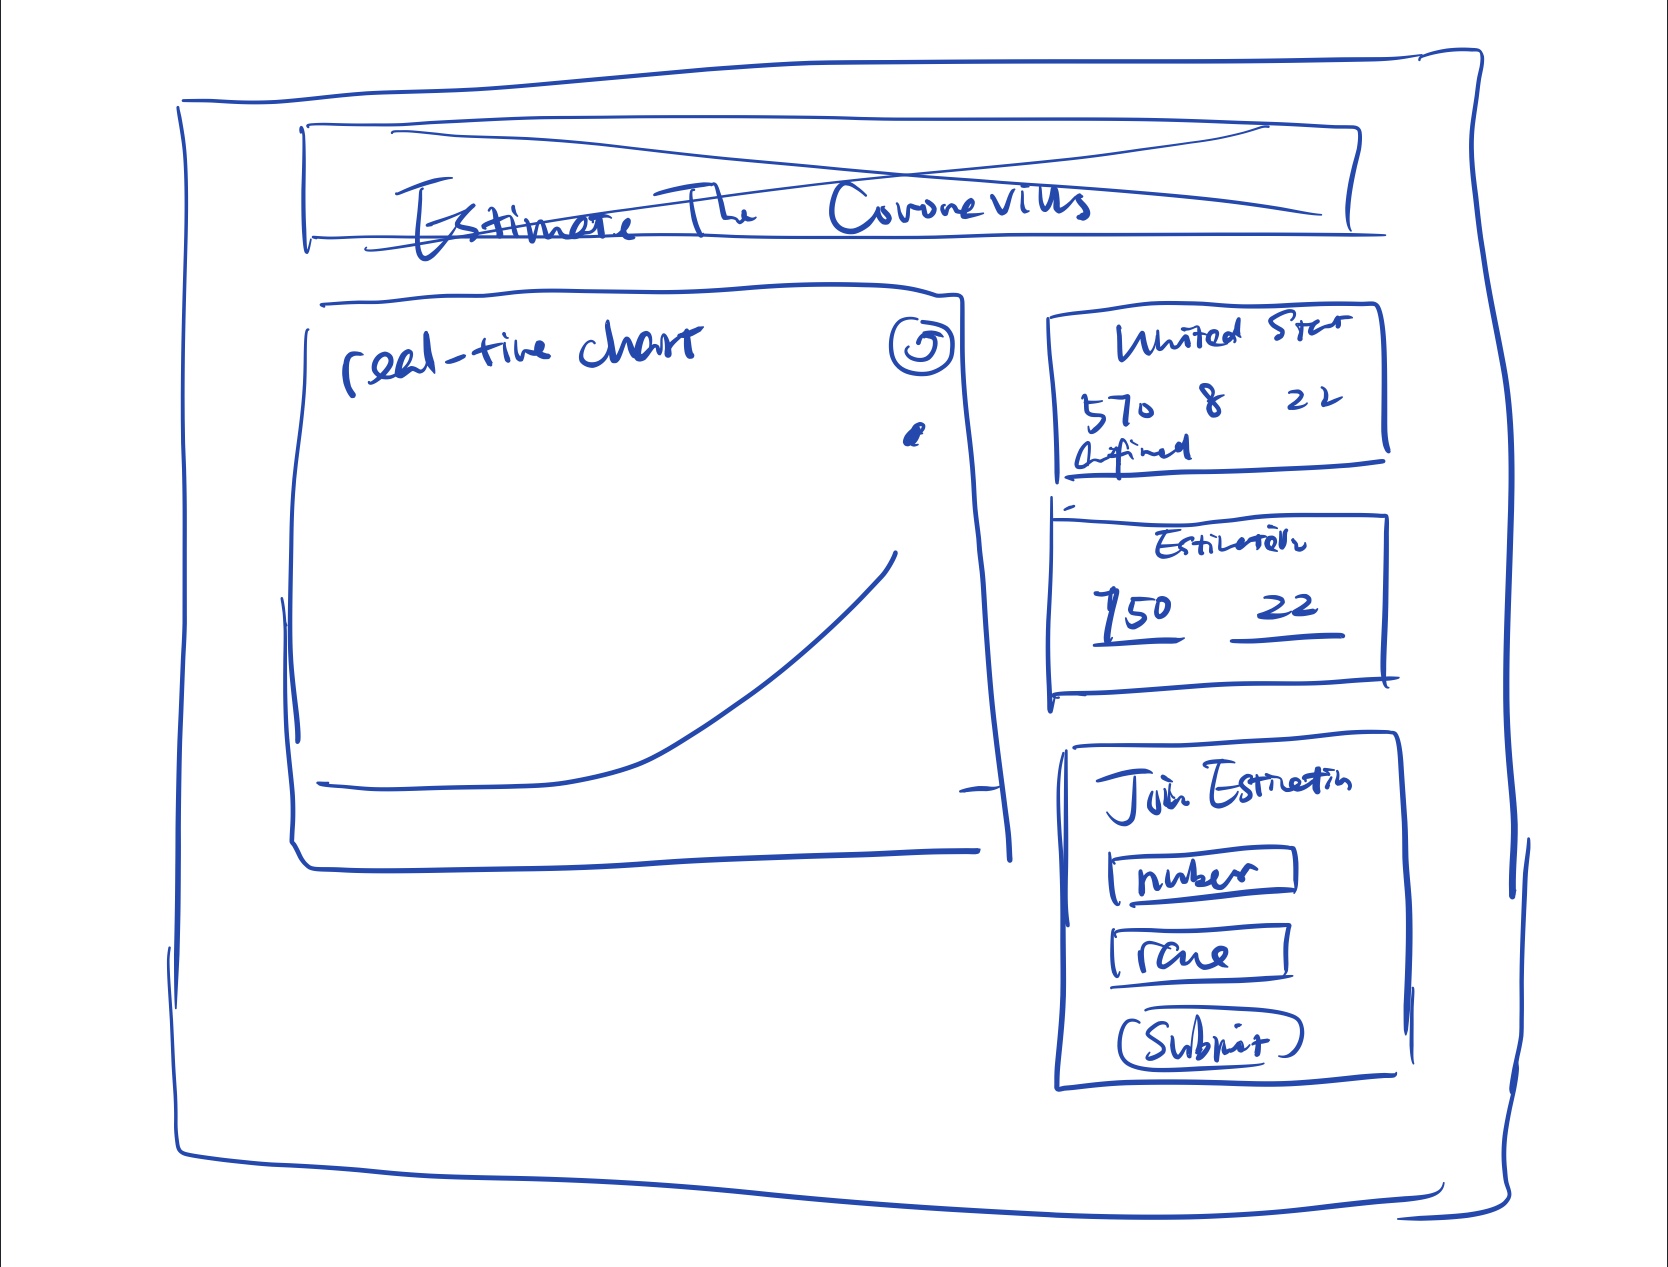 Estimate The Coronavirus
real-time chart
United Stat
570 8 22
Confirmed
Estimation
750 22
Join Estimation
number
name
Submit